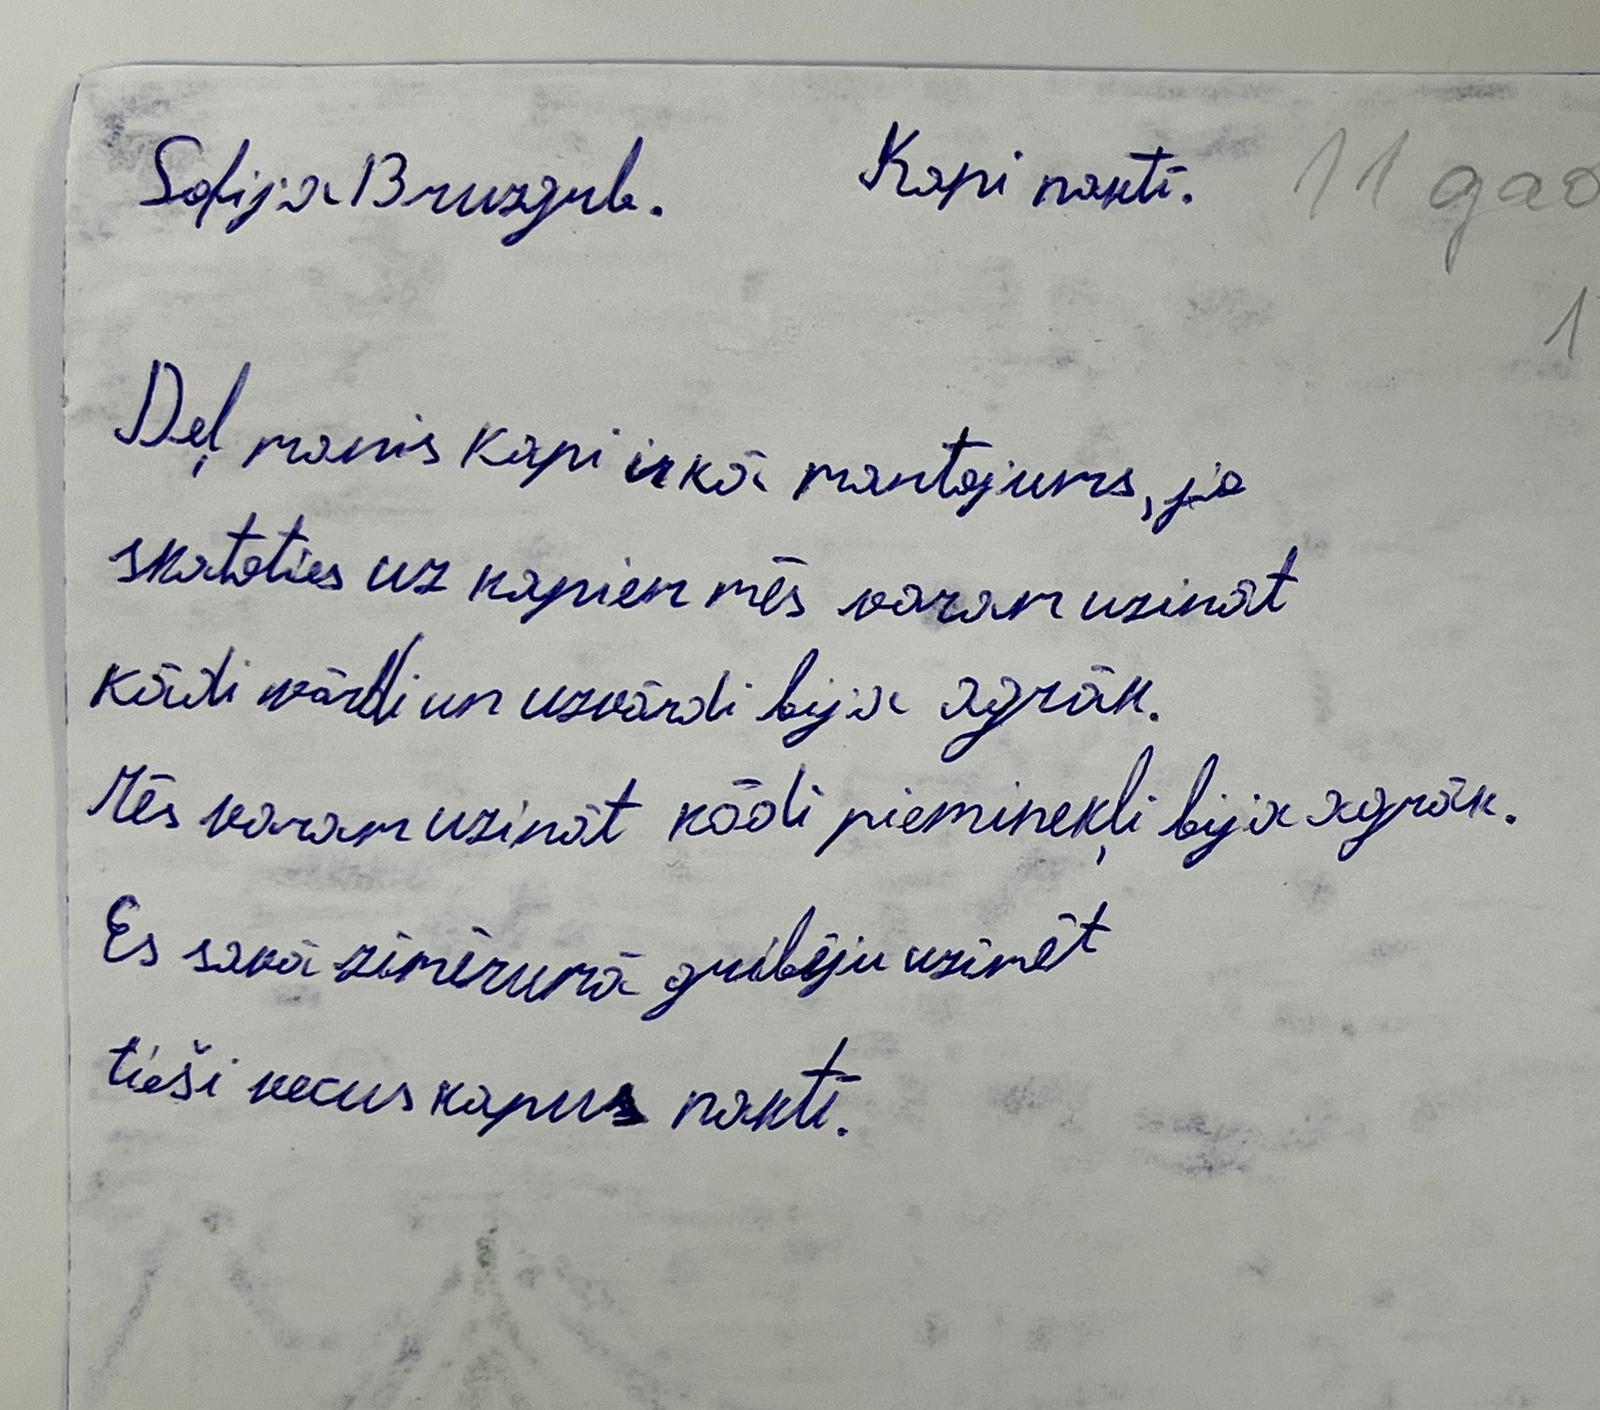 Sofija Bruzgul. Kapi naktī. 11 gad
1
Deļ manis kapi ir kā mantojums, jo
skatoties uz kapiem mēs varam uzināt
kādi vārdi un uzvārdi bija agrāk.
Mēs varam uzināt kādi pieminekļi bija agrāk.
Es savā zīmērumā gribēju uzīmēt
tieši vecus kapus naktī.